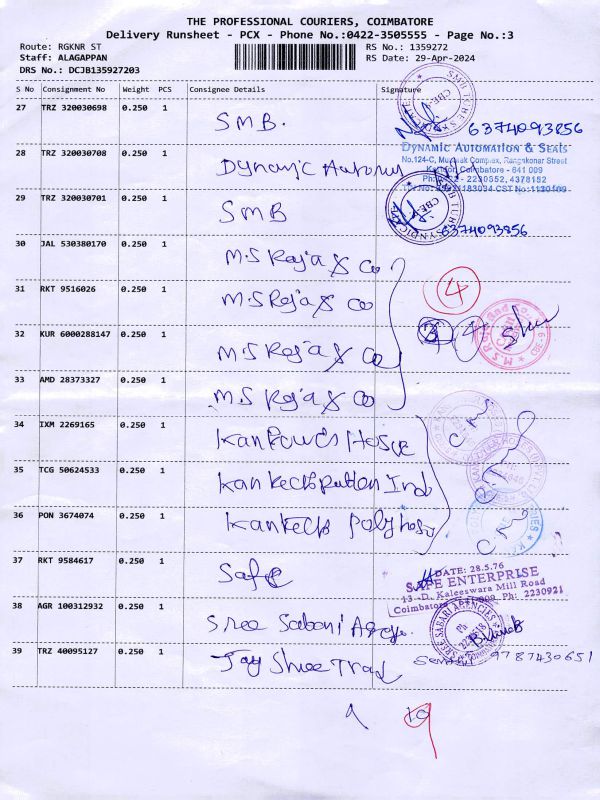 THE PROFESSIONAL COURIERS, COIMBATORE
Delivery Runsheet - PCX - Phone No.:0422-3505555 - Page No.:3
Route: RGKNR ST
RS No.: 1359272
Staff: ALAGAPPAN
RS Date: 29-Apr-2024
DRS No.: DCJB135927203
S No Consignment No Weight PCS Consignee Details Signature
27 TRZ 320030698 0.250 1 SMB.
6374093856
28 TRZ 320030708 0.250 1 Dynamic
DYNAMIC AUTOMATION & SEALS
Coimbatore - 641 009
2230352, 4378152
29 TRZ 320030701 0.250 1 SMB
6374093856
30 JAL 530380170 0.250 1 M.S Raja & Co
31 RKT 9516026 0.250 1 M.S Raja & Co
4
32 KUR 6000288147 0.250 1 M.S Raja & Co
33 AMD 28373327 0.250 1 M.S Raja & Co
34 IXM 2269165 0.250 1
35 TCG 50624533 0.250 1
36 PON 3674074 0.250 1
37 RKT 9584617 0.250 1 Safe
DATE: 28.5.76
SAFE ENTERPRISE
13 -D, Kaleeswara Mill Road
Coimbatore Ph: 2230921
38 AGR 100312932 0.250 1 Sree Sabari
SREE SABARI AGENCIES
39 TRZ 40095127 0.250 1 Jay Shree Trad
9787430651